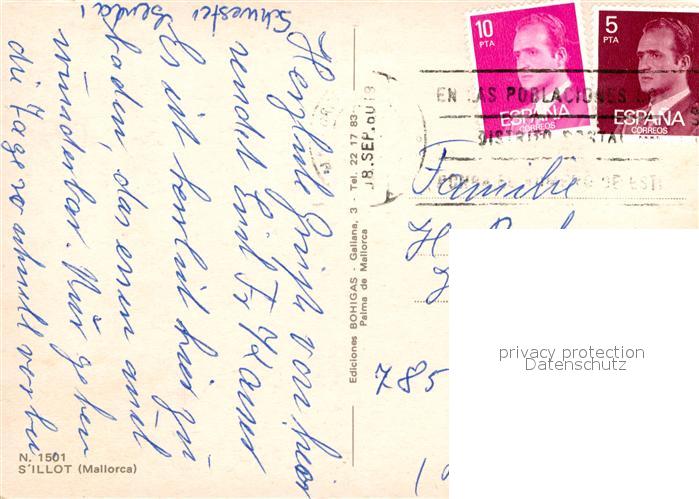 Herzliche Grüße von hier
sendet Euch Fr.
Es ist herrlich hier zu
baden, das essen auch
wunderbar. Nur gehen
die Tage so schnell vorbei
Schwester
N. 1501
S'ILLOT (Mallorca)
Ediciones BOHIGAS - Galiana, 3 - Tel. 22 17 83
Palma de Mallorca
10
PTA
ESPAÑA
CORREOS
5
PTA
ESPAÑA
CORREOS
F.N.M.T.
EN LAS POBLACIONES
DISTRITO POSTAL
DE ESTE
8.SEP.80
Familie
H.
785
privacy protection
Datenschutz